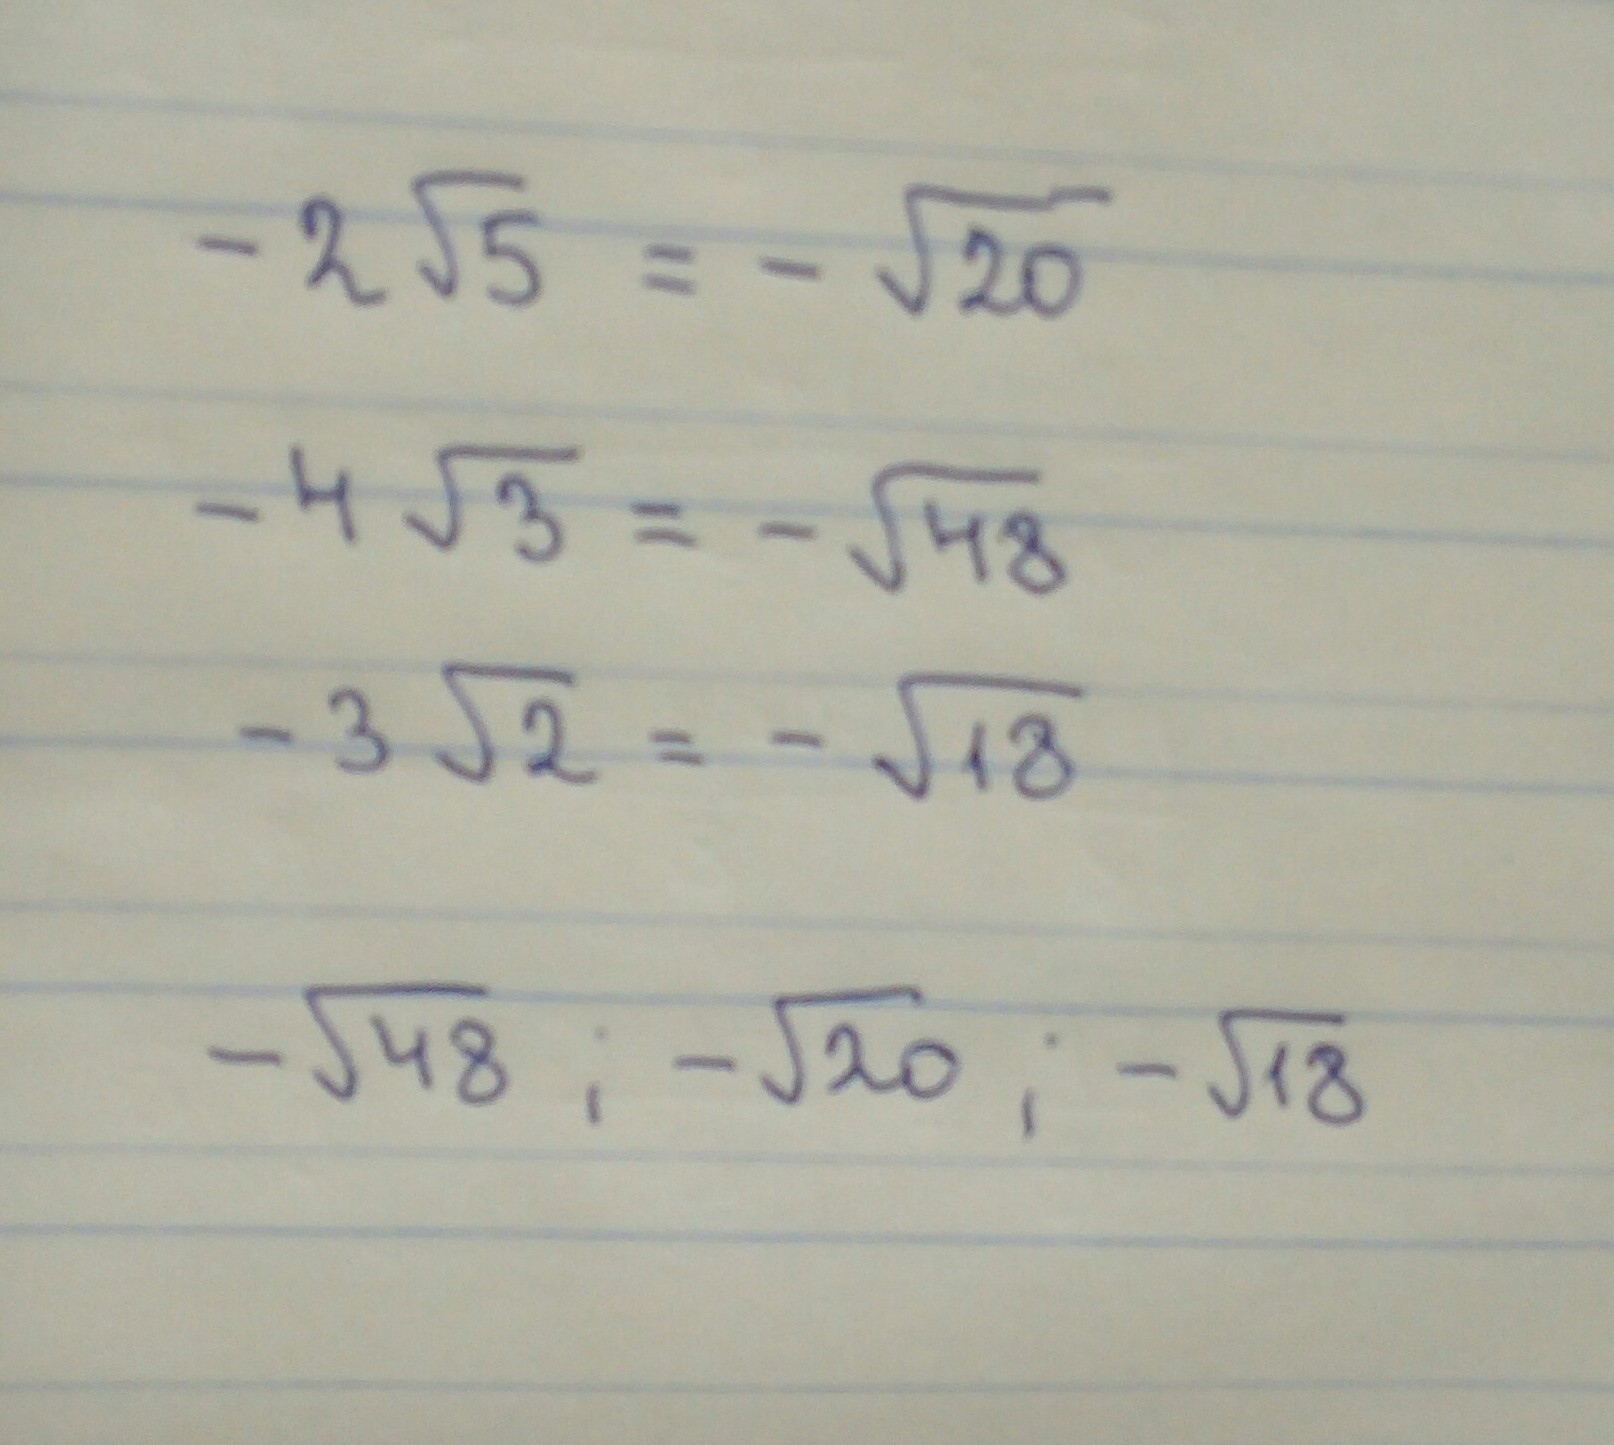 -2√5 = -√20
-4√3 = -√48
-3√2 = -√18
-√48 ; -√20 ; -√18